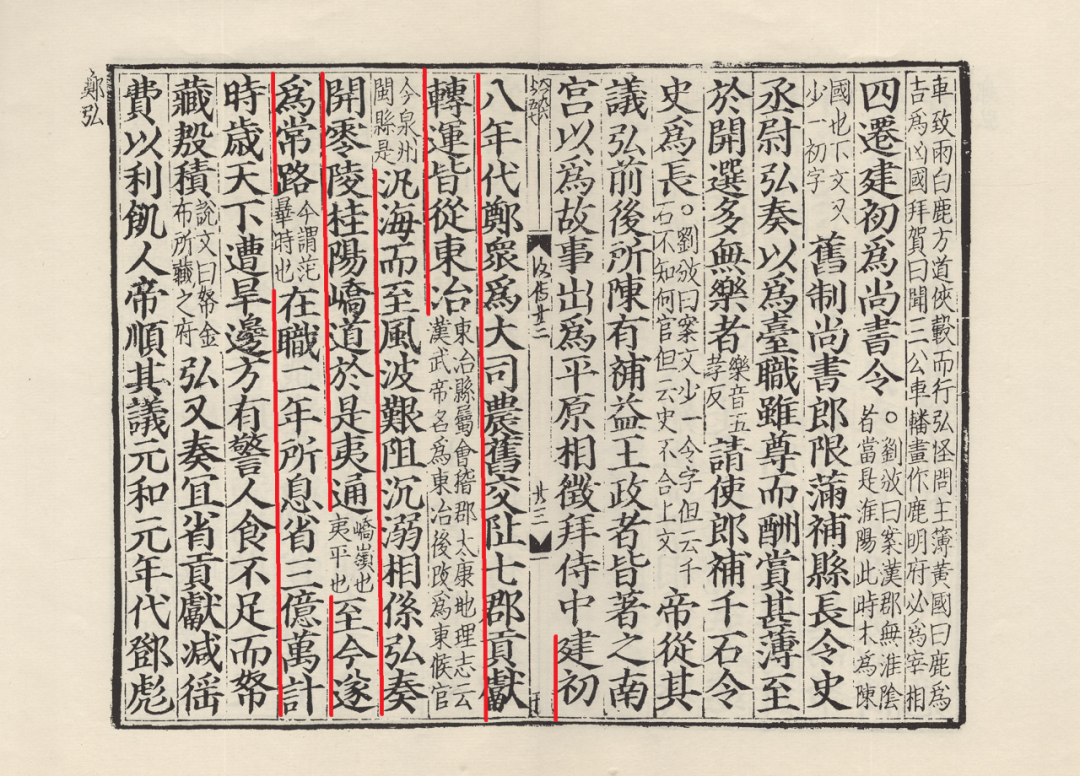 車致雨白鹿方道俠轂而行弘怪問主簿黃國曰鹿爲
吉爲凶國拜賀曰聞三公車轓畫作鹿明府必爲宰相
四遷建初爲尚書令
。劉攽曰案漢郡無淮陰
者當是淮陽此時未爲陳
國也下文又
少一初字
舊制尚書郎限滿補縣長令史
丞尉弘奏以爲臺職雖尊而酬賞甚薄至
於開選多無樂者
樂音五
孝反
請使郎補千石令
史爲長
。劉攽曰案文少一令字但云千
石不知何官但云史不合上文
帝從其
議弘前後所陳有補益王政者皆著之南
宮以爲故事出爲平原相徵拜侍中建初
廿三
八年代鄭衆爲大司農舊交阯七郡貢獻
轉運皆從東冶
東冶縣屬會稽郡太康地理志云
漢武帝名爲東冶後改爲東候官
今泉州
閩縣是
汎海而至風波艱阻沉溺相係弘奏
開零陵桂陽嶠道於是夷通
嶠嶺也
夷平也
至今遂
爲常路
今謂范
曄時也
在職二年所息省三億萬計
時歲天下遭旱邊方有警人食不足而帑
藏殷積
說文曰帑金
布所藏之府
弘又奏宜省貢獻減徭
費以利飢人帝順其議元和元年代鄧彪
鄭弘